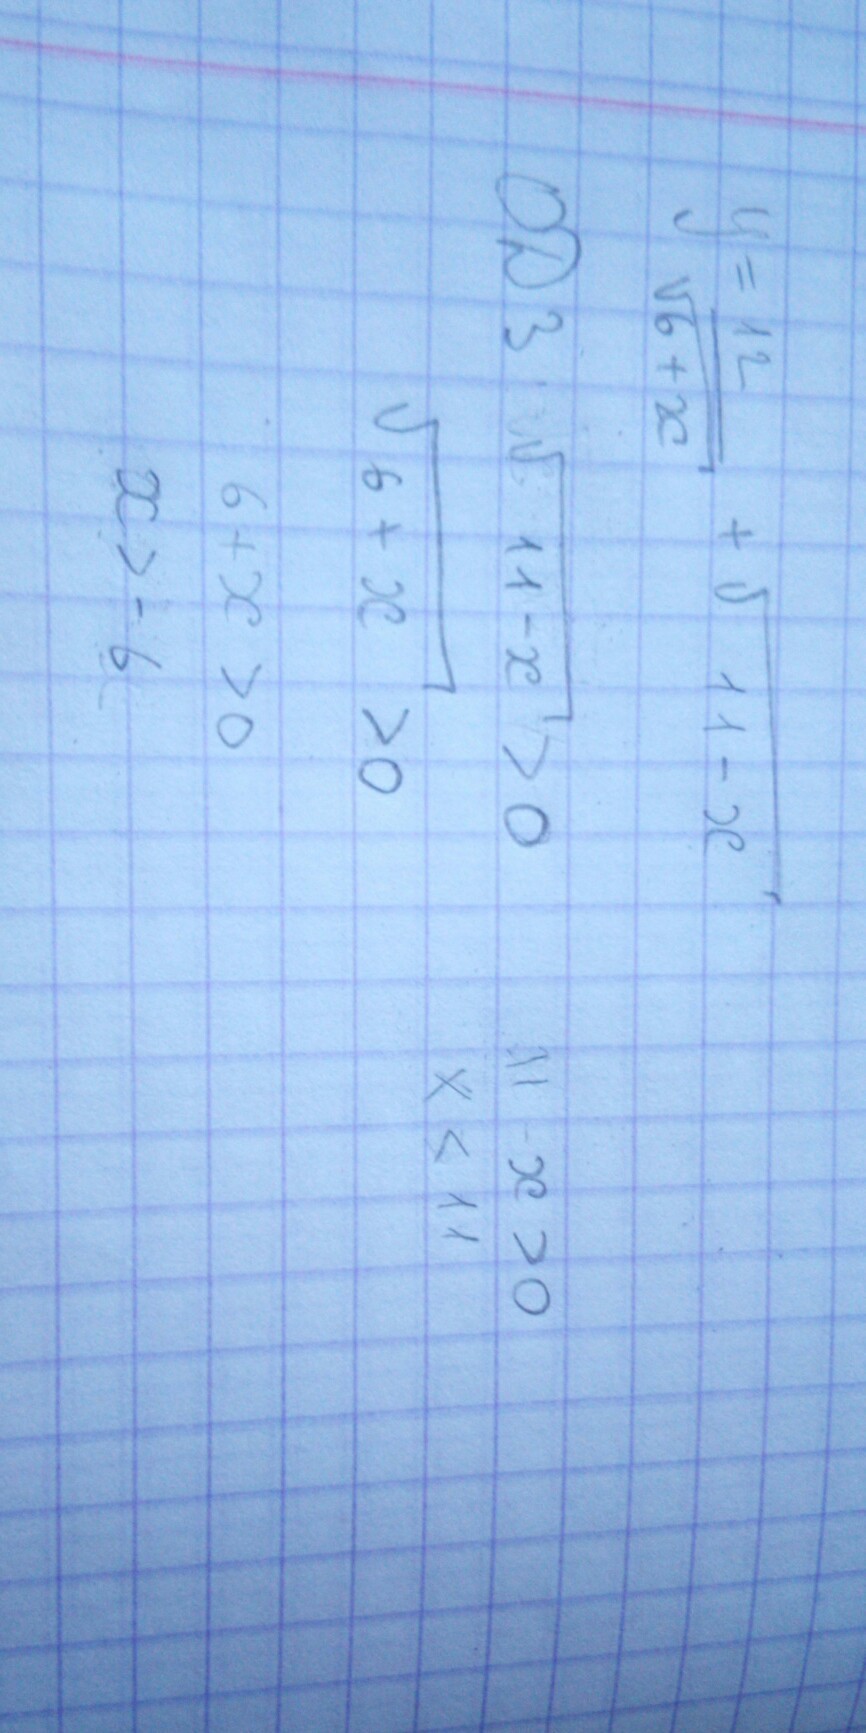 y = 12/√(6+x) + √(11-x)
ОДЗ: √(11-x) > 0   11-x > 0
√(6+x) > 0   x < 11
6+x > 0
x > -6